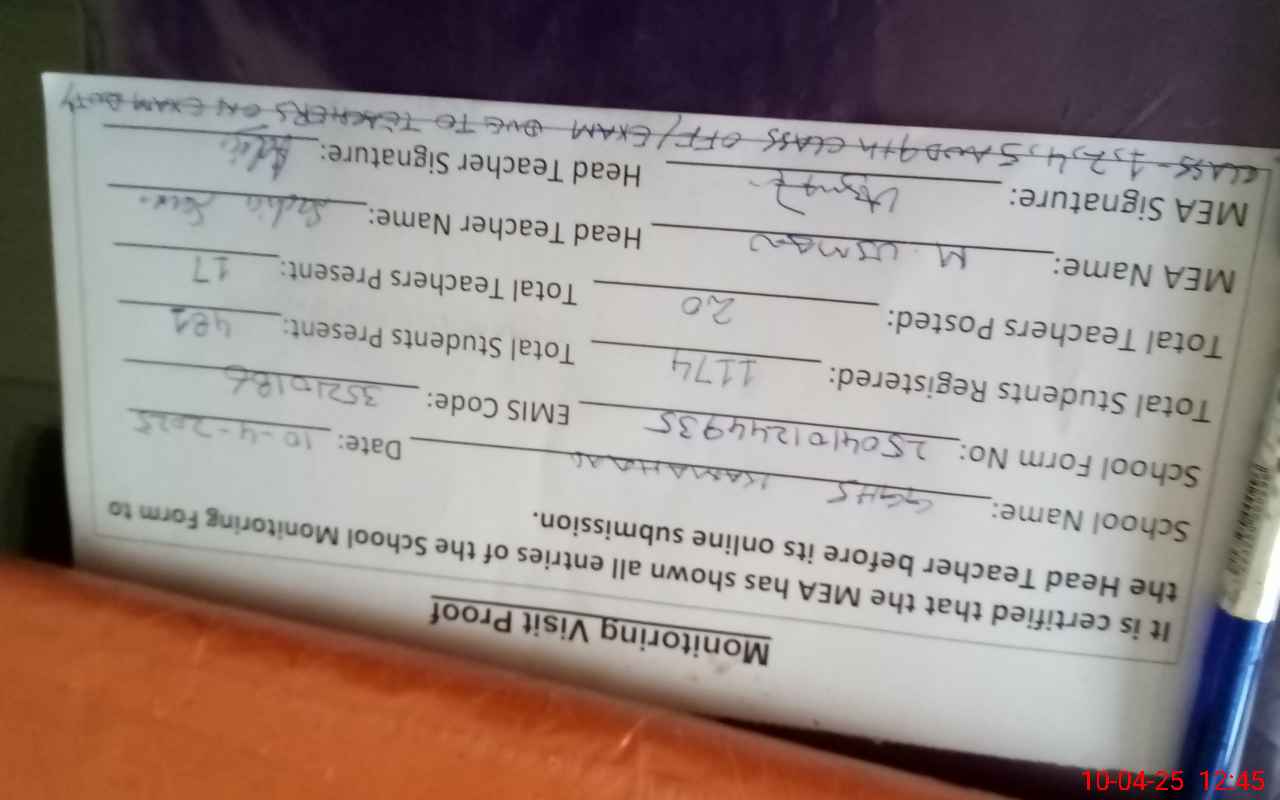 Monitoring Visit Proof
It is certified that the MEA has shown all entries of the School Monitoring Form to
the Head Teacher before its online submission.
School Name: GGHS KAMAHAN Date: 10-4-2025
School Form No: 250410124493S EMIS Code: 35210186
Total Students Registered: 1174 Total Students Present: 481
Total Teachers Posted: 20 Total Teachers Present: 17
MEA Name: M. USMAN Head Teacher Name: Sadia
MEA Signature: Head Teacher Signature:
CLASS-1,2,4,5 AND 9th CLASS OFF/EXAM DUE TO TEACHERS ON EXAM DUTY
10-04-25 12:45